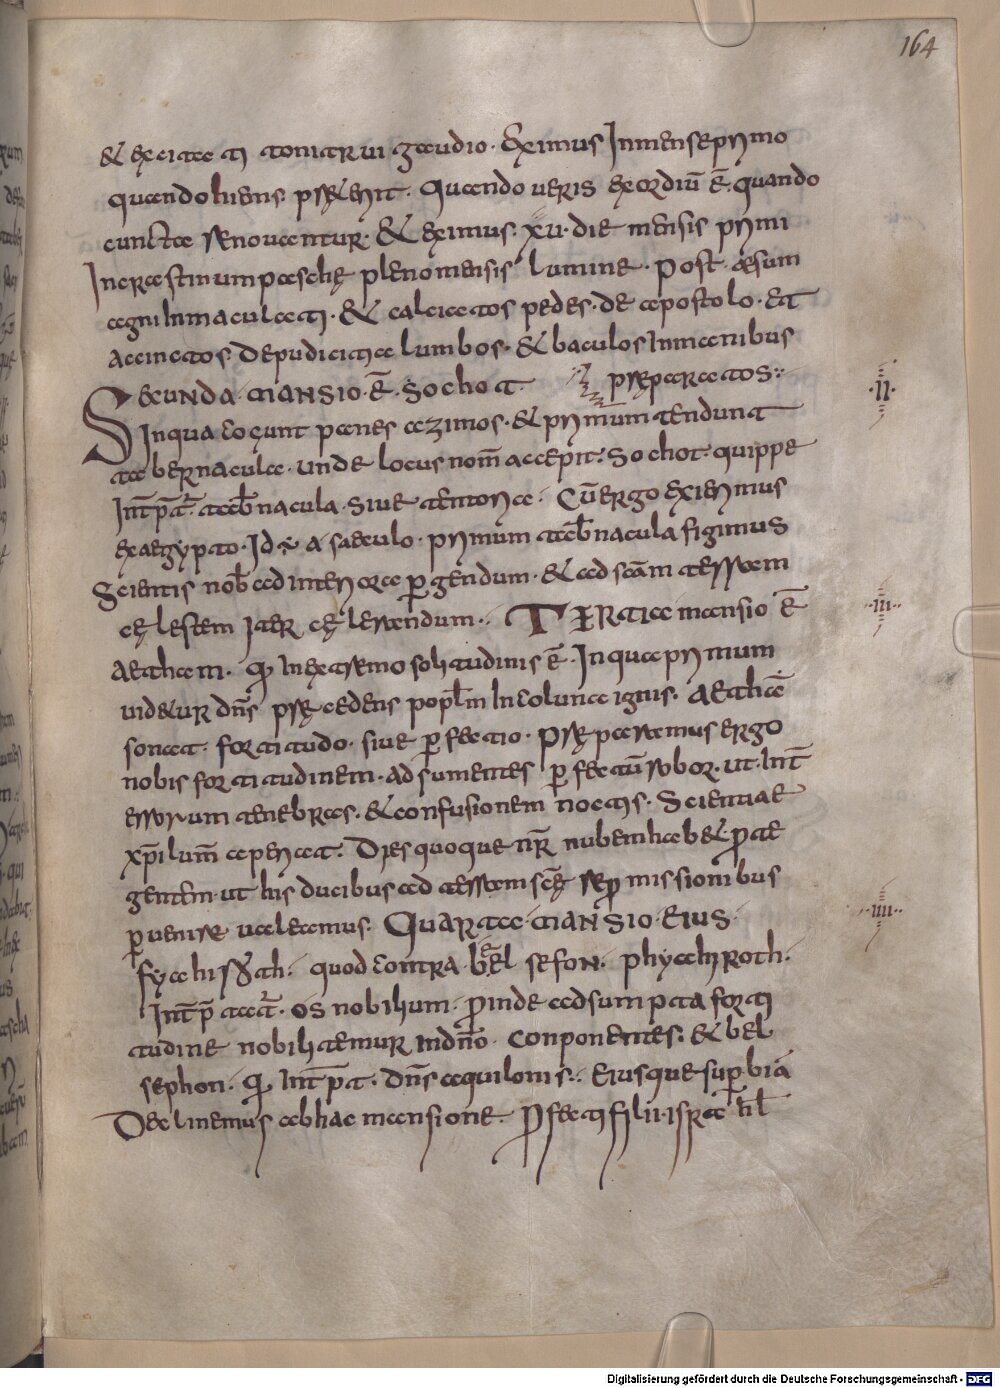 164
& excitati tonitrui gaudio. Eximus In mense primo
quando hiems pręterit. quando ueris exordiū ē. quando
cuncta renouantur. & eximus. xu. die mensis primi
In crastinum paschę pleno mensis lumine. post aesum
agni Inmaculati. & calciatos pedes. de apostolo. et
accinctos de pudicitia lumbos. & baculos In manibus
pręparatos:
Secunda mansio. ē. Sochot.
In qua coçunt panes azimos. & primum tendunt
tabernacula. unde locus nom̄ accepit. Sochot. quippe
Int̄p̄t̄. tab̄nacula. siue tentoria. Cū ergo exierimus
ex aegypto. Id ē a saeculo. primum tab̄nacula figimus
Scientis nob̄ ad interiora ꝑgendum. & ad sc̄am terram
cęlestem Iter cęlerandum. Tertia mansio ē
Aetham. qđ In extremo solitudinis ē. In qua primum
uidetur dn̄s pręcedens popl̄m In columna ignis. Aethā
sonat. fortitudo. siue ꝑfectio. Pręparemus ergo
nobis fortitudinem. adsumentes ꝑfectū robor. ut. Int̄
errorum tenebras. & confusionem noctis. Scientiae
xp̄i lum̄ apareat. Dies quoque nr̄ nubem habet ꝓte
gentem. ut his ducibus ad terram scę̄ repromissionibus
ꝑuenire ualeamus. Quarta mansio. eius.
fyahiroth. quod contra. beel sefon. phyahiroth.
Int̄p̄tat̄. os nobilium. ꝓinde adsumpta forti
tudine nobilitemur In dn̄o. Conponentes. & bel
sephon. qđ Int̄p̄t. dn̄s aquilonis. Eiusque suꝑbiā
Declinemus ab hac mansione. ꝓfecti filii israhl̄
·II·
·III·
·IIII·
Digitalisierung gefördert durch die Deutsche Forschungsgemeinschaft - DFG